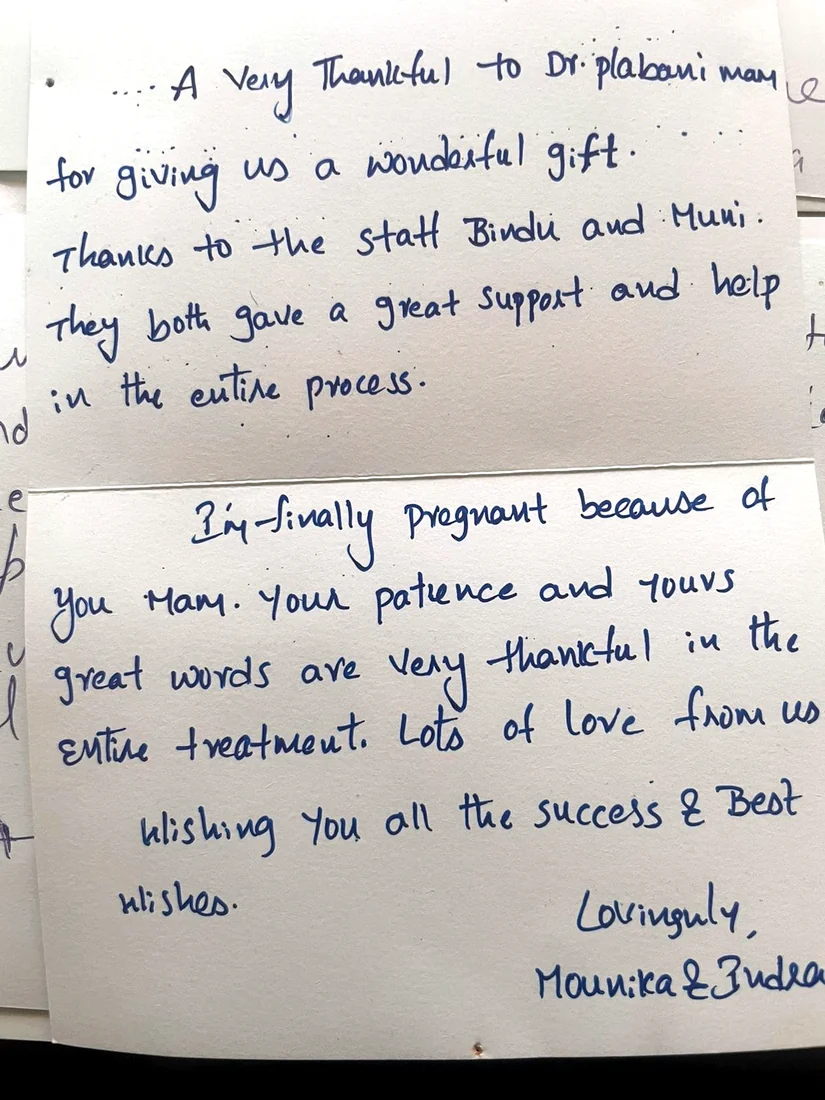 .... A Very Thankful to Dr. plabani mam
for giving us a wonderful gift.
Thanks to the staff Bindu and Muni.
They both gave a great support and help
in the entire process.
I'm finally pregnant because of
you Mam. Your patience and yours
great words are very thankful in the
entire treatment. Lots of love from us
Wishing You all the success & Best
wishes.
Lovinguly,
Mounika & Indra